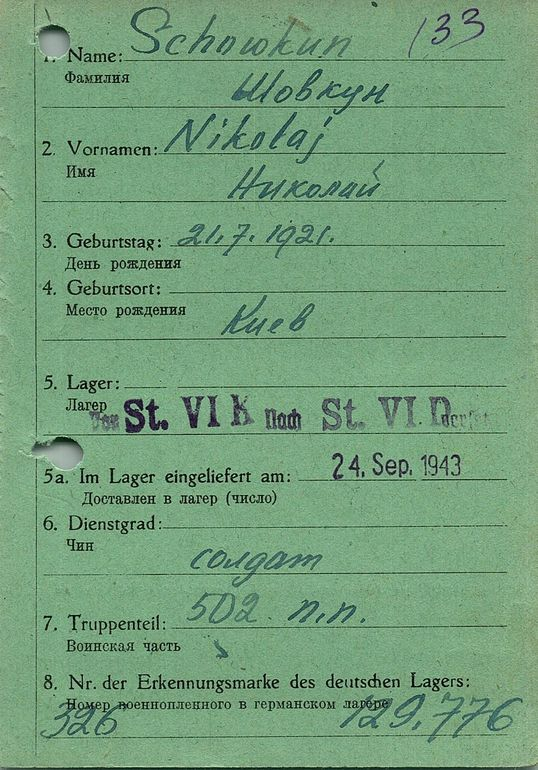 133
1. Name: Schowkun
Фамилия
Шовкун
2. Vornamen: Nikolaj
Имя
Николай
3. Geburtstag: 21.7.1921.
День рождения
4. Geburtsort:
Место рождения
Киев
5. Lager:
Лагер
Von St. VI K Nach St. VI D
24. Sep. 1943
5a. Im Lager eingeliefert am:
Доставлен в лагер (число)
6. Dienstgrad:
Чин
солдат
7. Truppenteil: 502 п.п.
Воинская часть
8. Nr. der Erkennungsmarke des deutschen Lagers:
Номер военнопленного в германском лагере
326 129.776